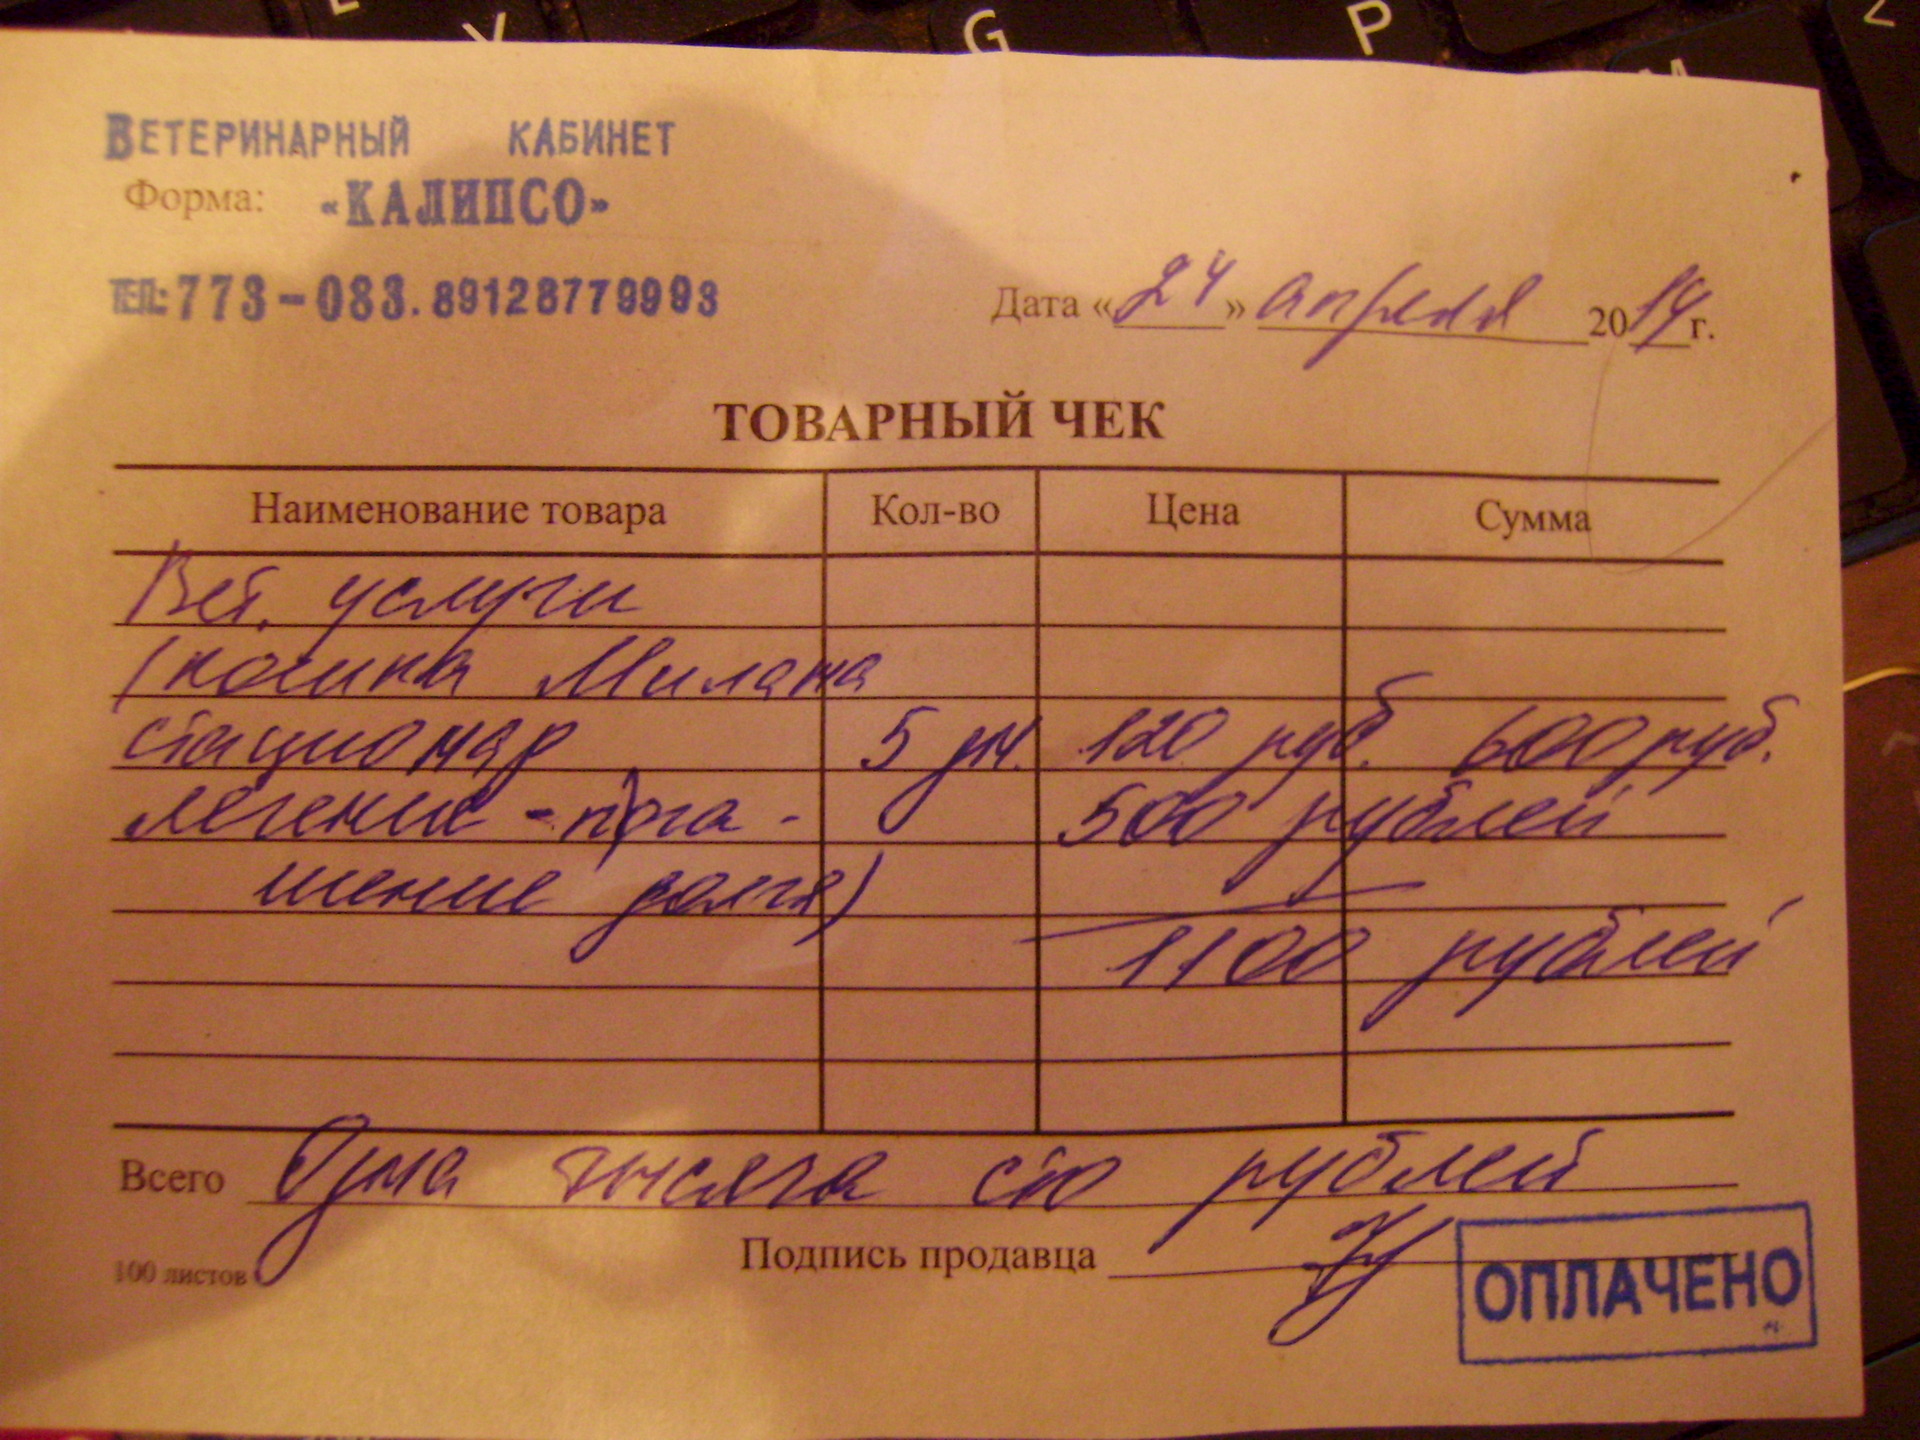 ВЕТЕРИНАРНЫЙ КАБИНЕТ
Форма: «КАЛИПСО»
ТЕЛ: 773-083. 89128779993
Дата «24» апреля 2014 г.
ТОВАРНЫЙ ЧЕК
Наименование товара Кол-во Цена Сумма
Вет. услуги
(кошка Милана
стационар 5 дн. 120 руб. 600 руб.
лечение - пога- 500 рублей
шение долга)
1100 рублей
Всего Одна тысяча сто рублей
Подпись продавца
100 листов
ОПЛАЧЕНО
G
P